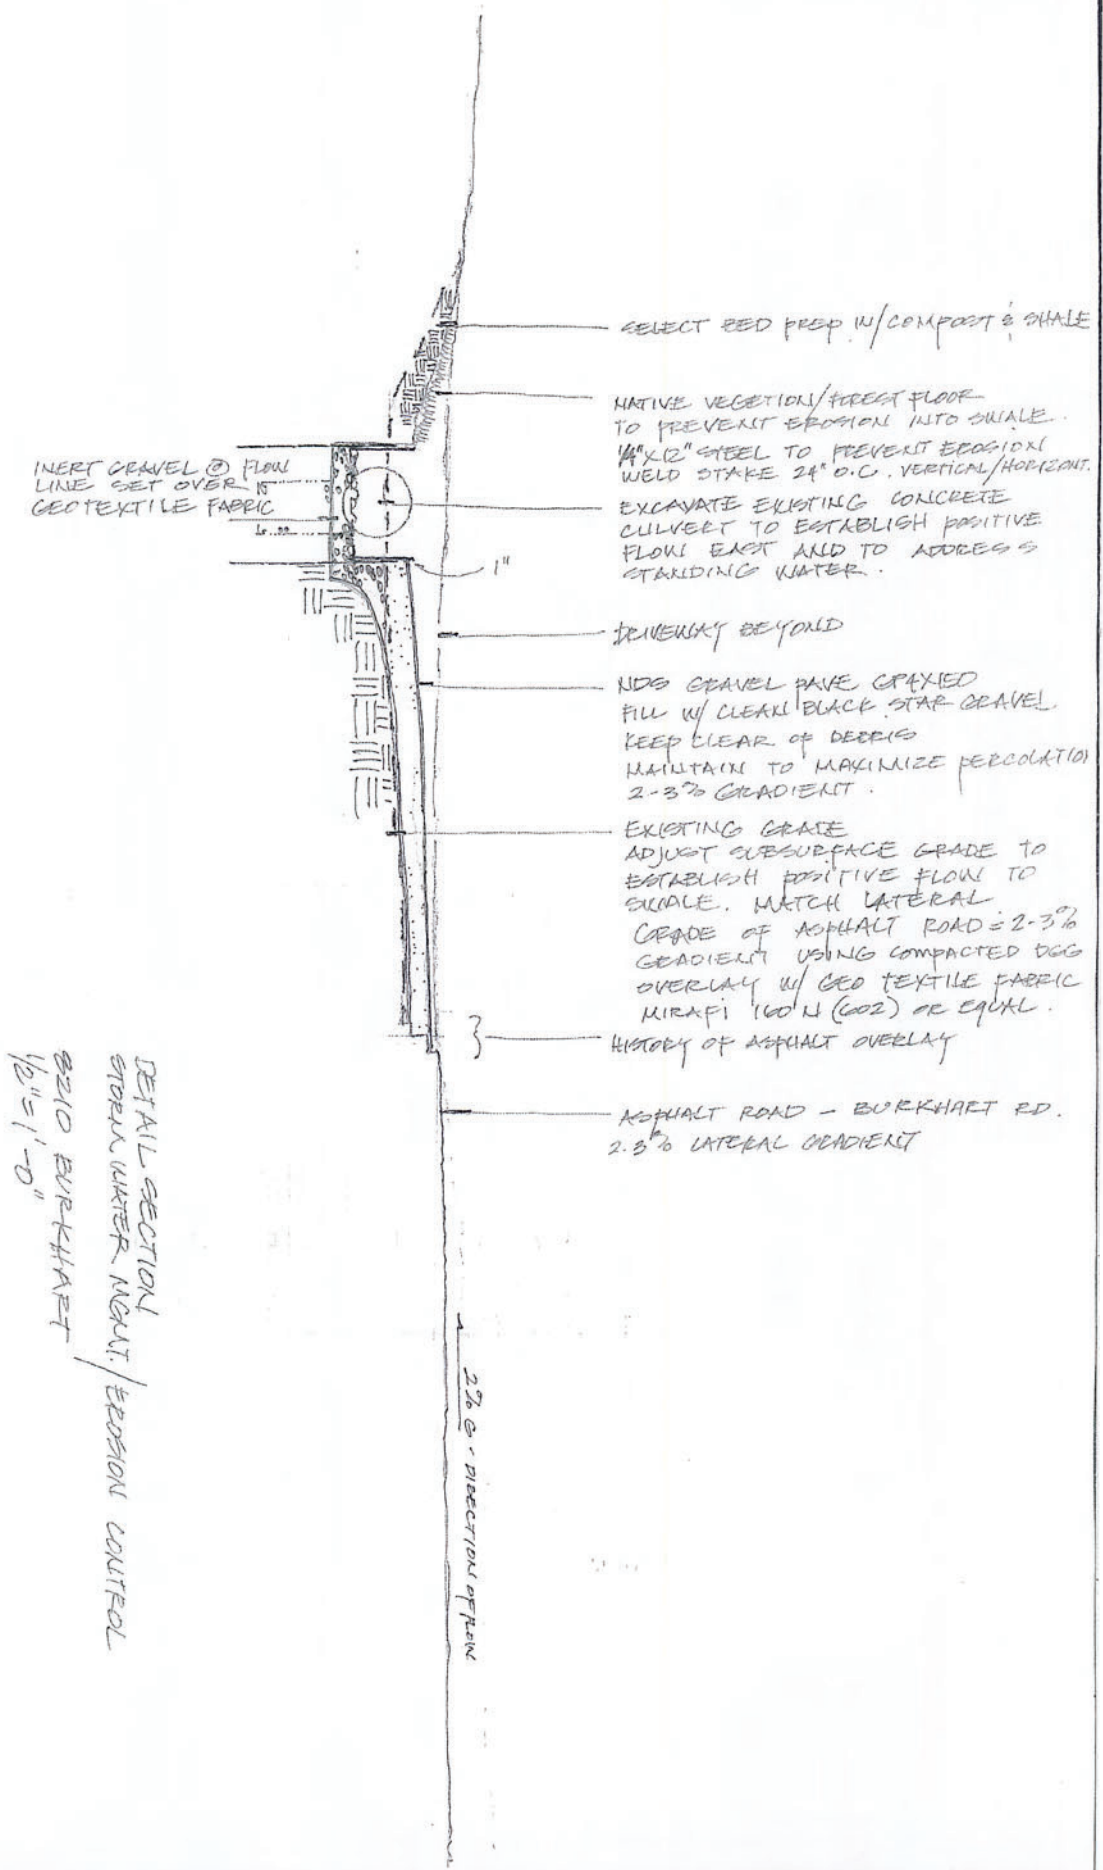 SELECT BED PREP W/COMPOST & SHALE
NATIVE VEGETION/FOREST FLOOR
TO PREVENT EROSION INTO SWALE.
1/4"X12" STEEL TO PREVENT EROSION
WELD STAKE 24" O.C. VERTICAL/HORIZONT.
INERT GRAVEL @ FLOW
LINE SET OVER
GEOTEXTILE FABRIC
EXCAVATE EXISTING CONCRETE
CULVERT TO ESTABLISH POSITIVE
FLOW EAST AND TO ADDRESS
STANDING WATER.
1"
DRIVEWAY BEYOND
NDS GRAVEL PAVE
FILL W/ CLEAN BLACK STAR GRAVEL
KEEP CLEAR OF DEBRIS
MAINTAIN TO MAXIMIZE PERCOLATION
2-3% GRADIENT.
EXISTING GRADE
ADJUST SUBSURFACE GRADE TO
ESTABLISH POSITIVE FLOW TO
SWALE. MATCH LATERAL
GRADE OF ASPHALT ROAD = 2-3%
GRADIENT USING COMPACTED DGG
OVERLAY W/ GEO TEXTILE FABRIC
MIRAFI 160 N (602) OR EQUAL.
HISTORY OF ASPHALT OVERLAY
ASPHALT ROAD - BURKHART RD.
2.3% LATERAL GRADIENT
2% @ - DIRECTION OF FLOW
DETAIL SECTION
STORM WATER MGMT./EROSION CONTROL
8210 BURKHART
1/2"=1'-0"